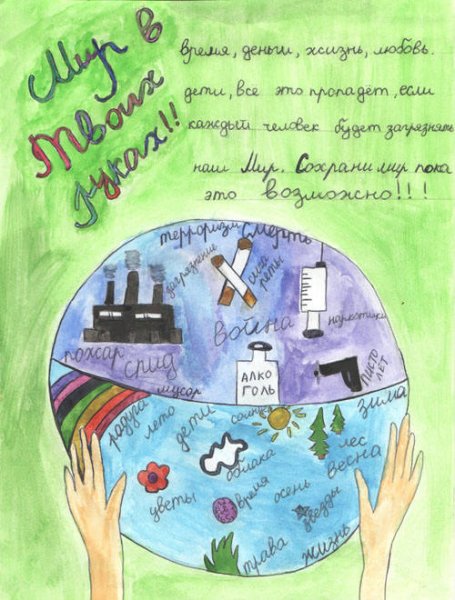 Мир в
твоих
руках!!
время, деньги, жизнь, любовь.
дети, все это пропадёт, если
каждый человек будет загрязнять
наш Мир. Сохрани мир пока
это возможно!!!
терроризм
смерть
загрязнение
сигареты
война
наркотики
пожар
спид
АЛКО
ГОЛЬ
писто
лет
мусор
зима
радуга
лето
дети
солнце
лес
облака
весна
цветы
время
осень
звезды
трава
жизнь